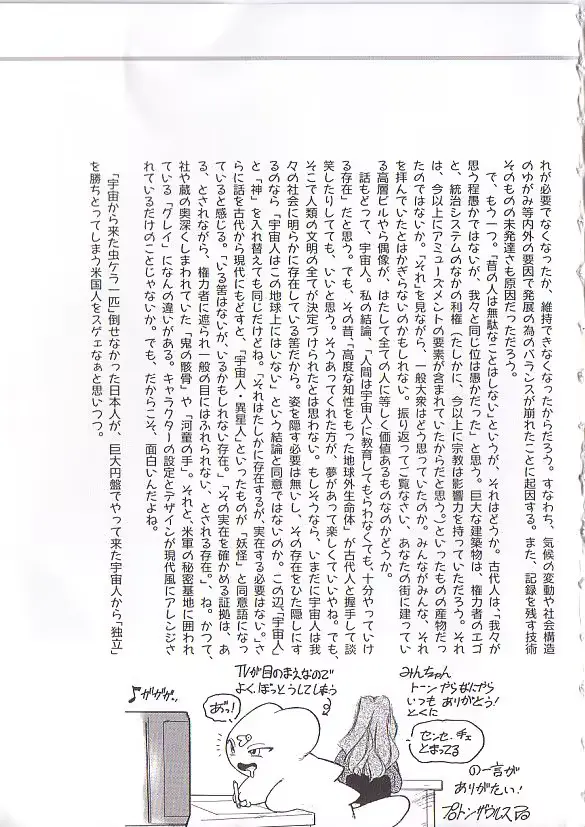 れが必要でなくなったか、維持できなくなったからだろう。すなわち、気候の変動や社会構造
のゆがみ等内外の要因で発展の為のバランスが崩れたことに起因する。また、記録を残す技術
そのものの未発達さも原因だったろう。
で、もう一つ。「昔の人は無駄なことはしない」というが、それはどうか。古代人は「我々が
思う程愚かではないが、我々と同じ位は愚かだった」と思う。巨大な建築物は、権力者のエゴ
と、統治システムのなかの利権(たしかに、今以上に宗教は影響力を持っていただろう。それ
は、今以上にアミューズメントの要素が含まれていたからだと思う。)といったものの産物だっ
たのではないか。「それ」を見ながら、一般大衆はどう思っていたのか。みんながみんな、それ
を拝んでいたとはかぎらないのかもしれない。振り返ってご覧なさい、あなたの街に建ってい
る高層ビルやら偶像が、はたして全ての人に等しく価値あるものなのかどうか。
話もどって、宇宙人。私の結論、「人間は宇宙人に教育してもらわなくても、十分やっていけ
る存在」だと思う。でも、その昔、「高度な知性をもった地球外生命体」が古代人と握手して談
笑したりしてても、いいと思う。そうあってくれた方が、夢があって楽しくていいやね。でも、
そこで人類の文明の全てが決定づけられたとは思わない。もしそうなら、いまだに宇宙人は我
々の社会に明らかに存在している筈だから。姿を隠す必要は無いし、その存在をひた隠しにす
るのなら「宇宙人はこの地球上にはいない」という結論と同意ではないのか。この辺、「宇宙人」
と「神」を入れ替えても同じだけどね。「それはたしかに存在するが、実在する必要はない。」さ
らに話を古代から現代にもどすと、「宇宙人・異星人」といったものが「妖怪」と同意語になっ
ていると感じる。「いる筈はないが、いるかもしれない存在。」「その実在を確かめる証拠は、あ
る、とされながら、権力者に遮られ一般の目にはふれられない、とされる存在。」ね。かつて、
社や蔵の奥深くしまわれていた「鬼の骸骨」や「河童の手」。それと、米軍の秘密基地に囲われ
ている「グレイ」になんの違いがある。キャラクターの設定とデザインが現代風にアレンジさ
れているだけのことじゃないか。でも、だからこそ、面白いんだよね。
「宇宙から来た虫ケラ一匹」倒せなかった日本人が、巨大円盤でやって来た宇宙人から「独立」
を勝ちとってしまう米国人をスゲェなぁと思いつつ。
みんちゃん
トーンやらなにやら
いつもありがとう!
とくに
センセ、チェ
とまってる
の一言が
ありがたい!
TVが目のまえなので
よく、ぼっとうしてしまう
あっ!
♪ガガガ..